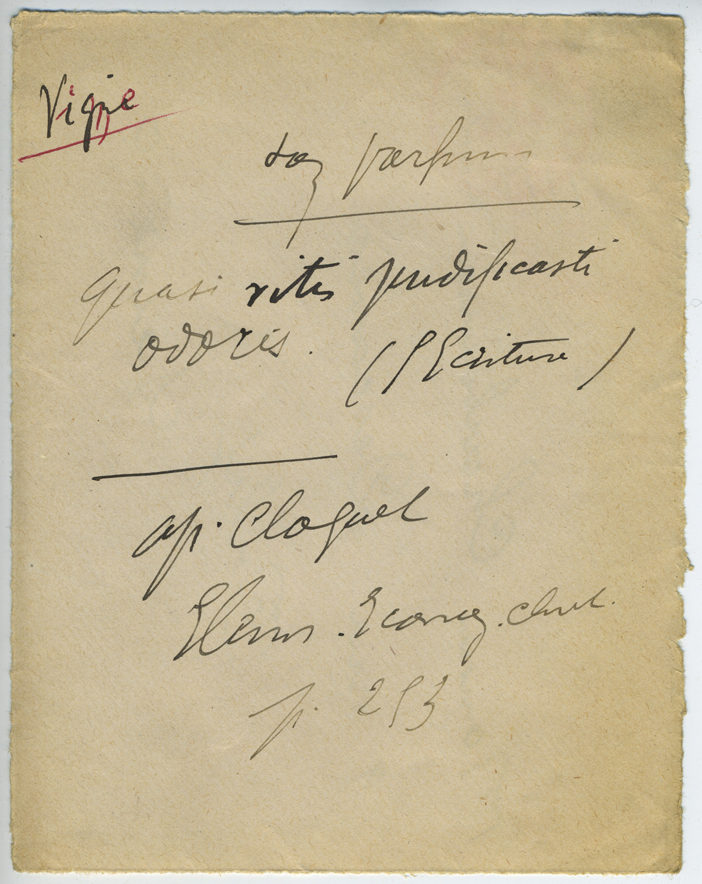 Vigne
son parfum
Quasi vitis fructificasti
odoris.
(l'Ecriture)
ap. Cloquet
Elem. Iconog. chret.
p. 293